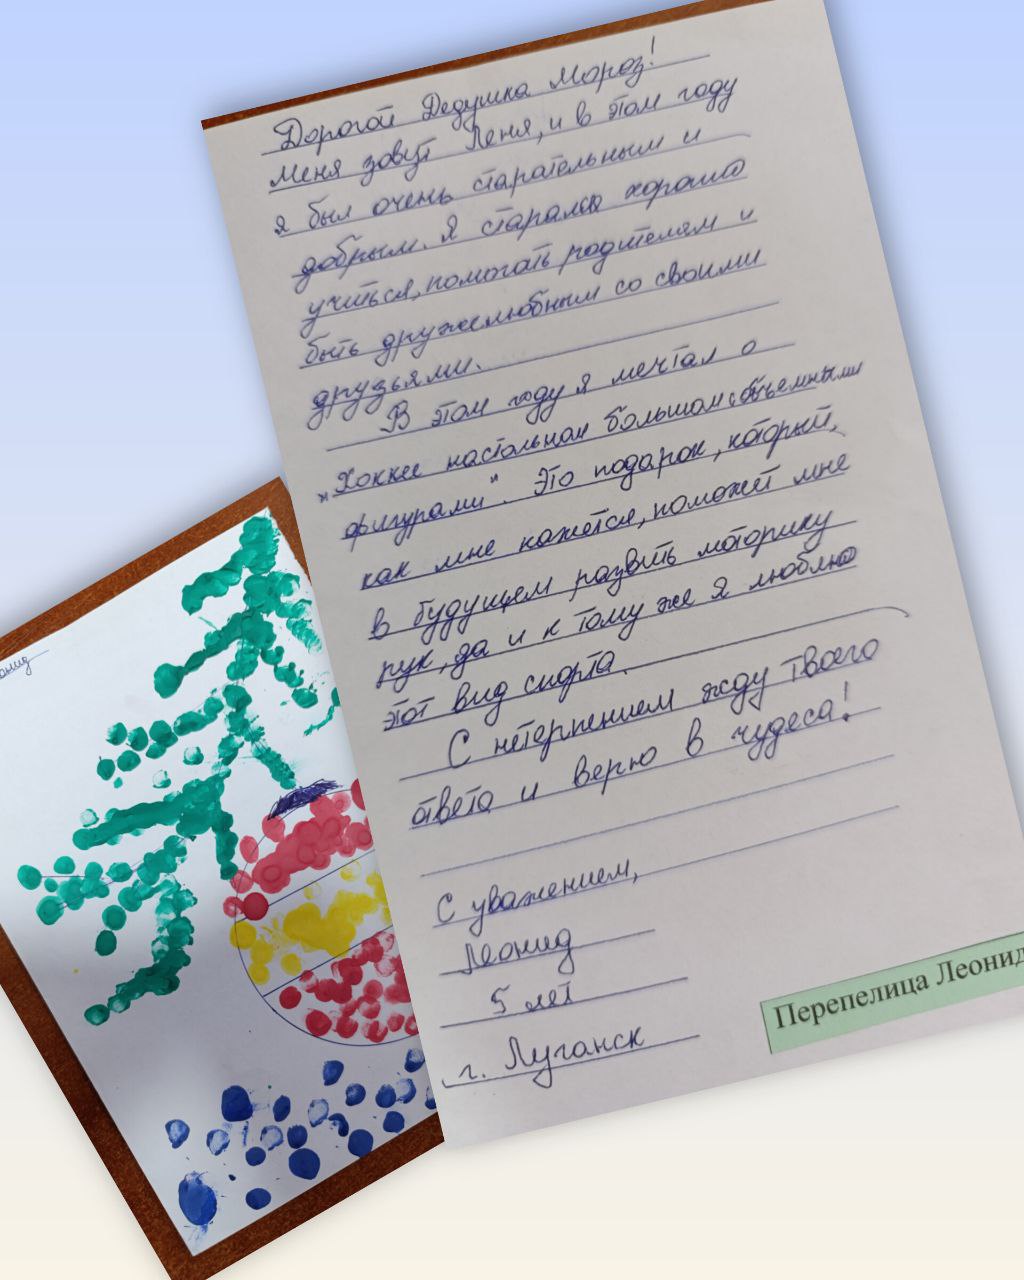 Дорогой Дедушка Мороз!
Меня зовут Леня, и в этом году
я был очень старательным и
добрым. Я старался хорошо
учиться, помогать родителям и
быть дружелюбным со своими
друзьями.
В этом году я мечтал о
"Хоккее настольном большом с объемными
фигурами". Это подарок, который,
как мне кажется, поможет мне
в будущем развить моторику
рук, да и к тому же я люблю
этот вид спорта.
С нетерпением жду твоего
ответа и верю в чудеса!
С уважением,
Леонид
5 лет
г. Луганск
Перепелица Леонид